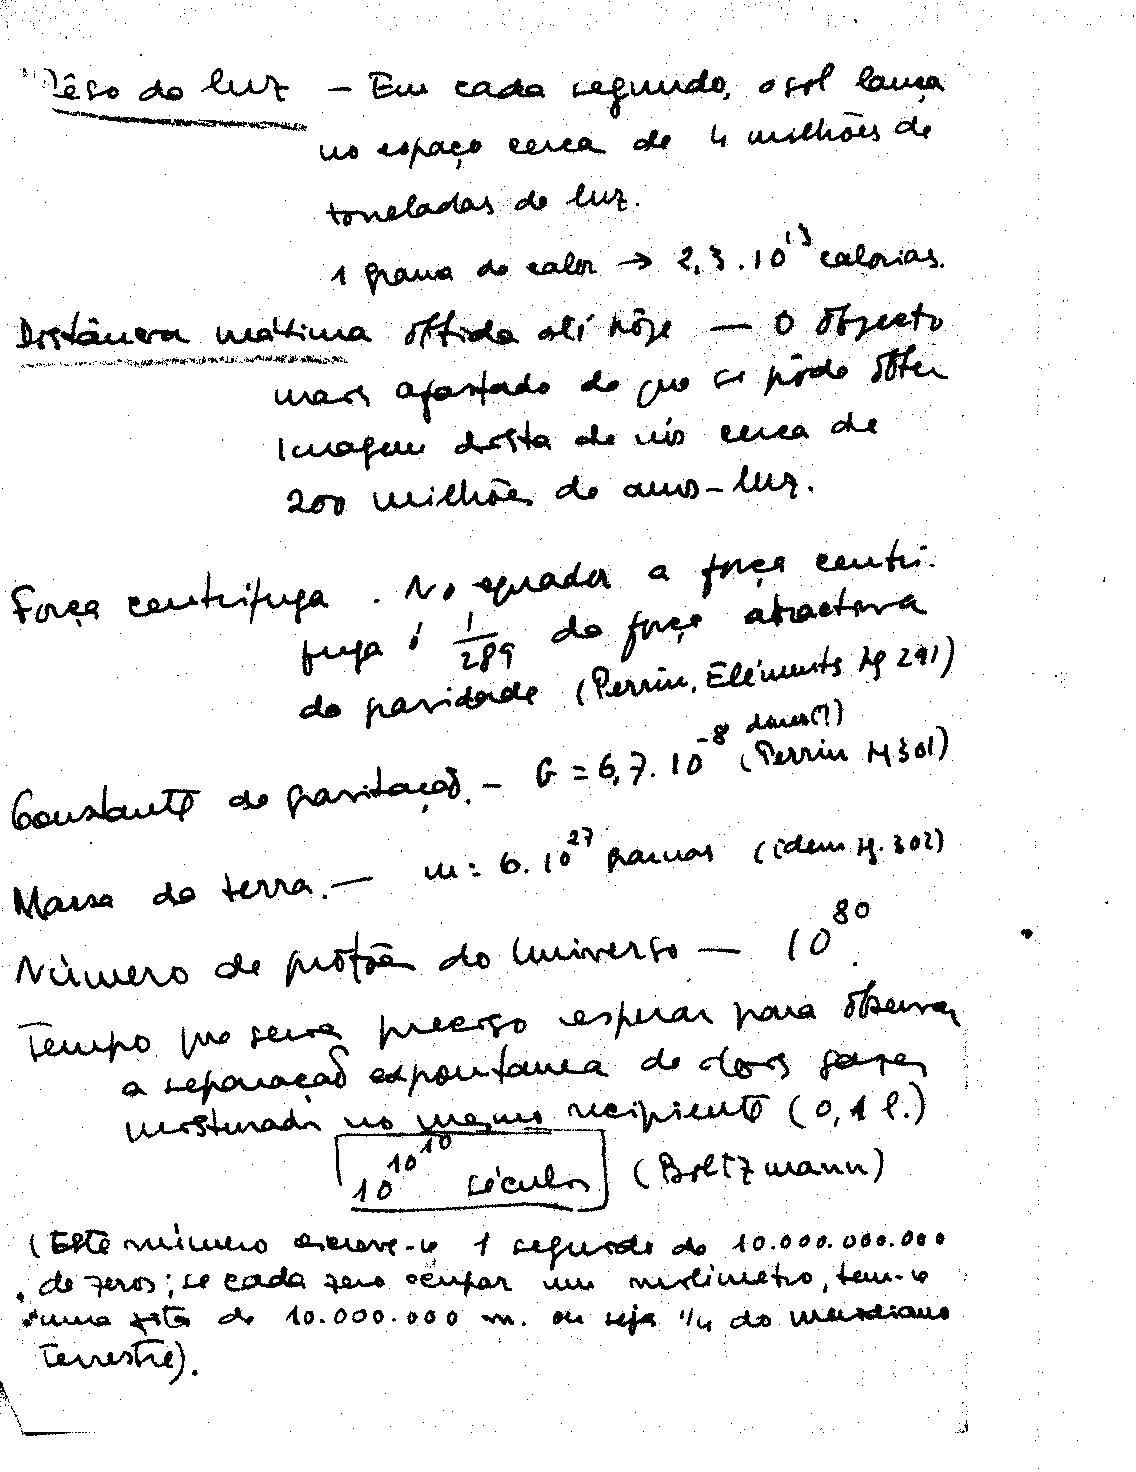 Pêso da luz – Em cada segundo, o sol lança
no espaço cerca de 4 milhões de
toneladas de luz.
1 grama de calor → 2,3.10¹³ calorias.
Distância máxima obtida até hôje — O objecto
mais afastado de que se pôde obter
imagem dista de nós cerca de
200 milhões de anos-luz.
Força centrífuga. No equador a força centrí-
fuga é 1/289 da força atractiva
da gravidade (Perrin, Eléments pg 291)
Constante de gravitação. – G = 6,7.10⁻⁸ dines(?) (Perrin pg 301)
Massa da terra. — m = 6.10²⁷ gramas (idem pg. 302)
Número de protões do Universo — 10⁸⁰.
Tempo que seria preciso esperar para observar
a separação espontânea de dois gases
misturados no mesmo recipiente (0,1 l.)
10^10^10 séculos (Boltzmann)
(Este número escreve-se 1 seguido de 10.000.000.000
de zeros; se cada zero ocupar um milímetro, tem-se
uma fita de 10.000.000 m. ou seja 1/4 do meridiano
terrestre).